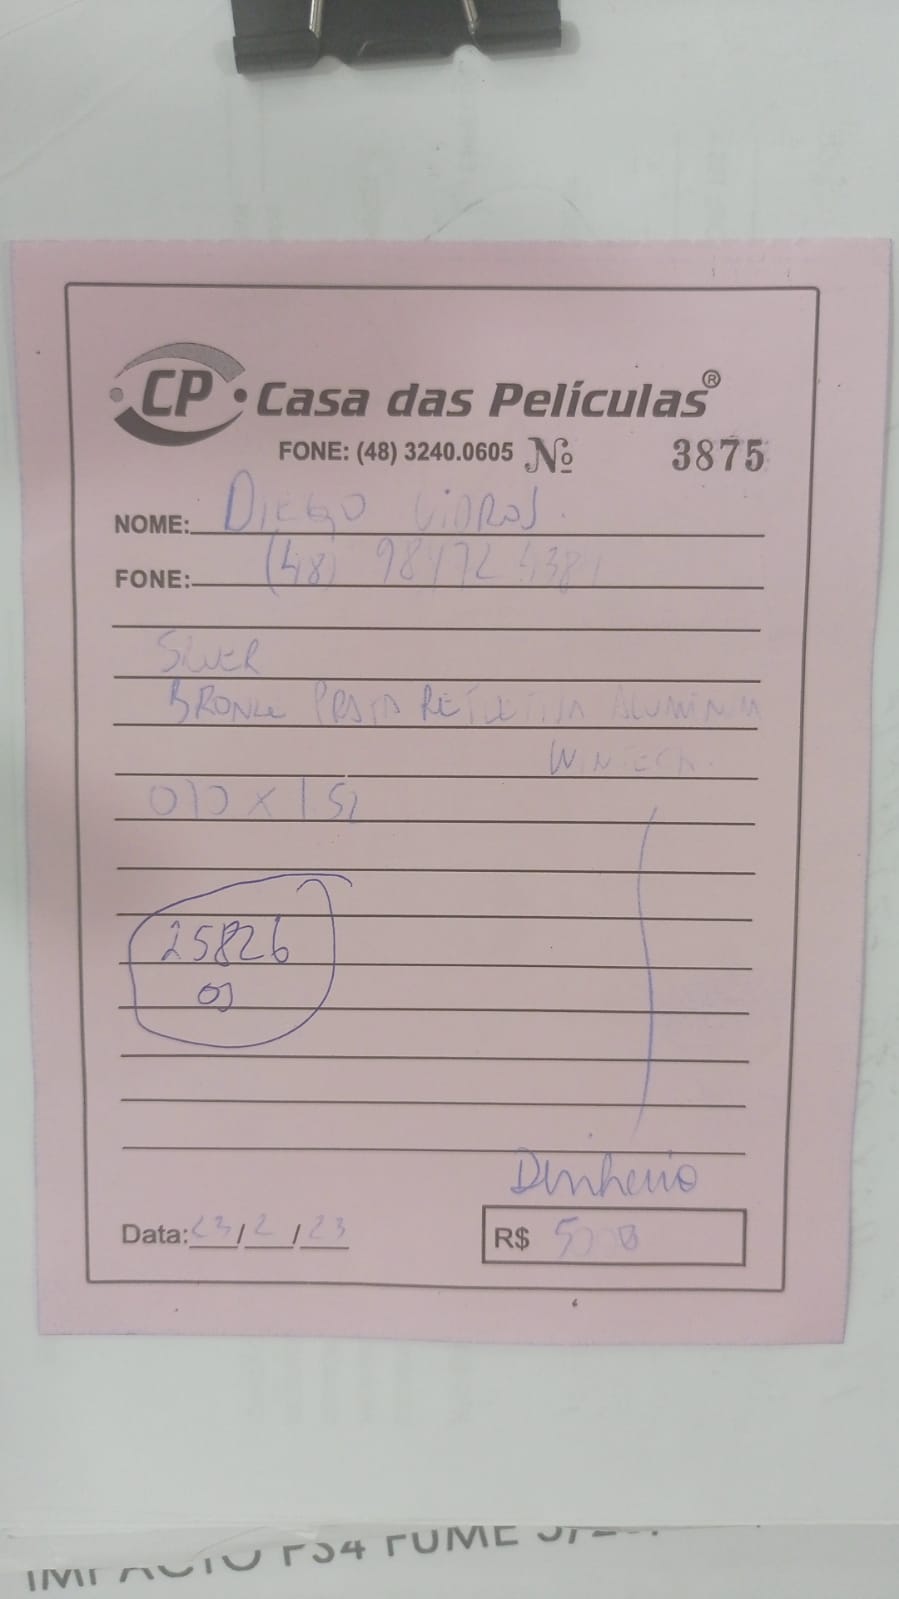 CP Casa das Películas®
FONE: (48) 3240.0605 Nº 3875
NOME: DIEGO VIDROS.
FONE: (48) 98472 4381
SILVER
BRONZE PRATA REFLETIVA ALUMINIUM
WINTECH.
070 x 1.52
25826
Dinheiro
Data: 23/2/23
R$
IMPACTO PS4 FUME